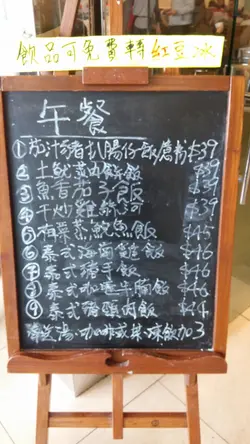 飲品可免費轉紅豆冰
午餐
①茄汁豬扒腸仔飯意粉$39
② 飯 $39
③魚香茄子飯 $39
④干炒雞絲河 $39
⑤梅菜蒸鯇魚飯 $45
⑥泰式海南雞飯 $46
⑦泰式豬手飯 $46
⑧泰式咖喱牛腩飯 $46
⑨泰式豬頸肉飯 $44
咖啡或茶 飯加3